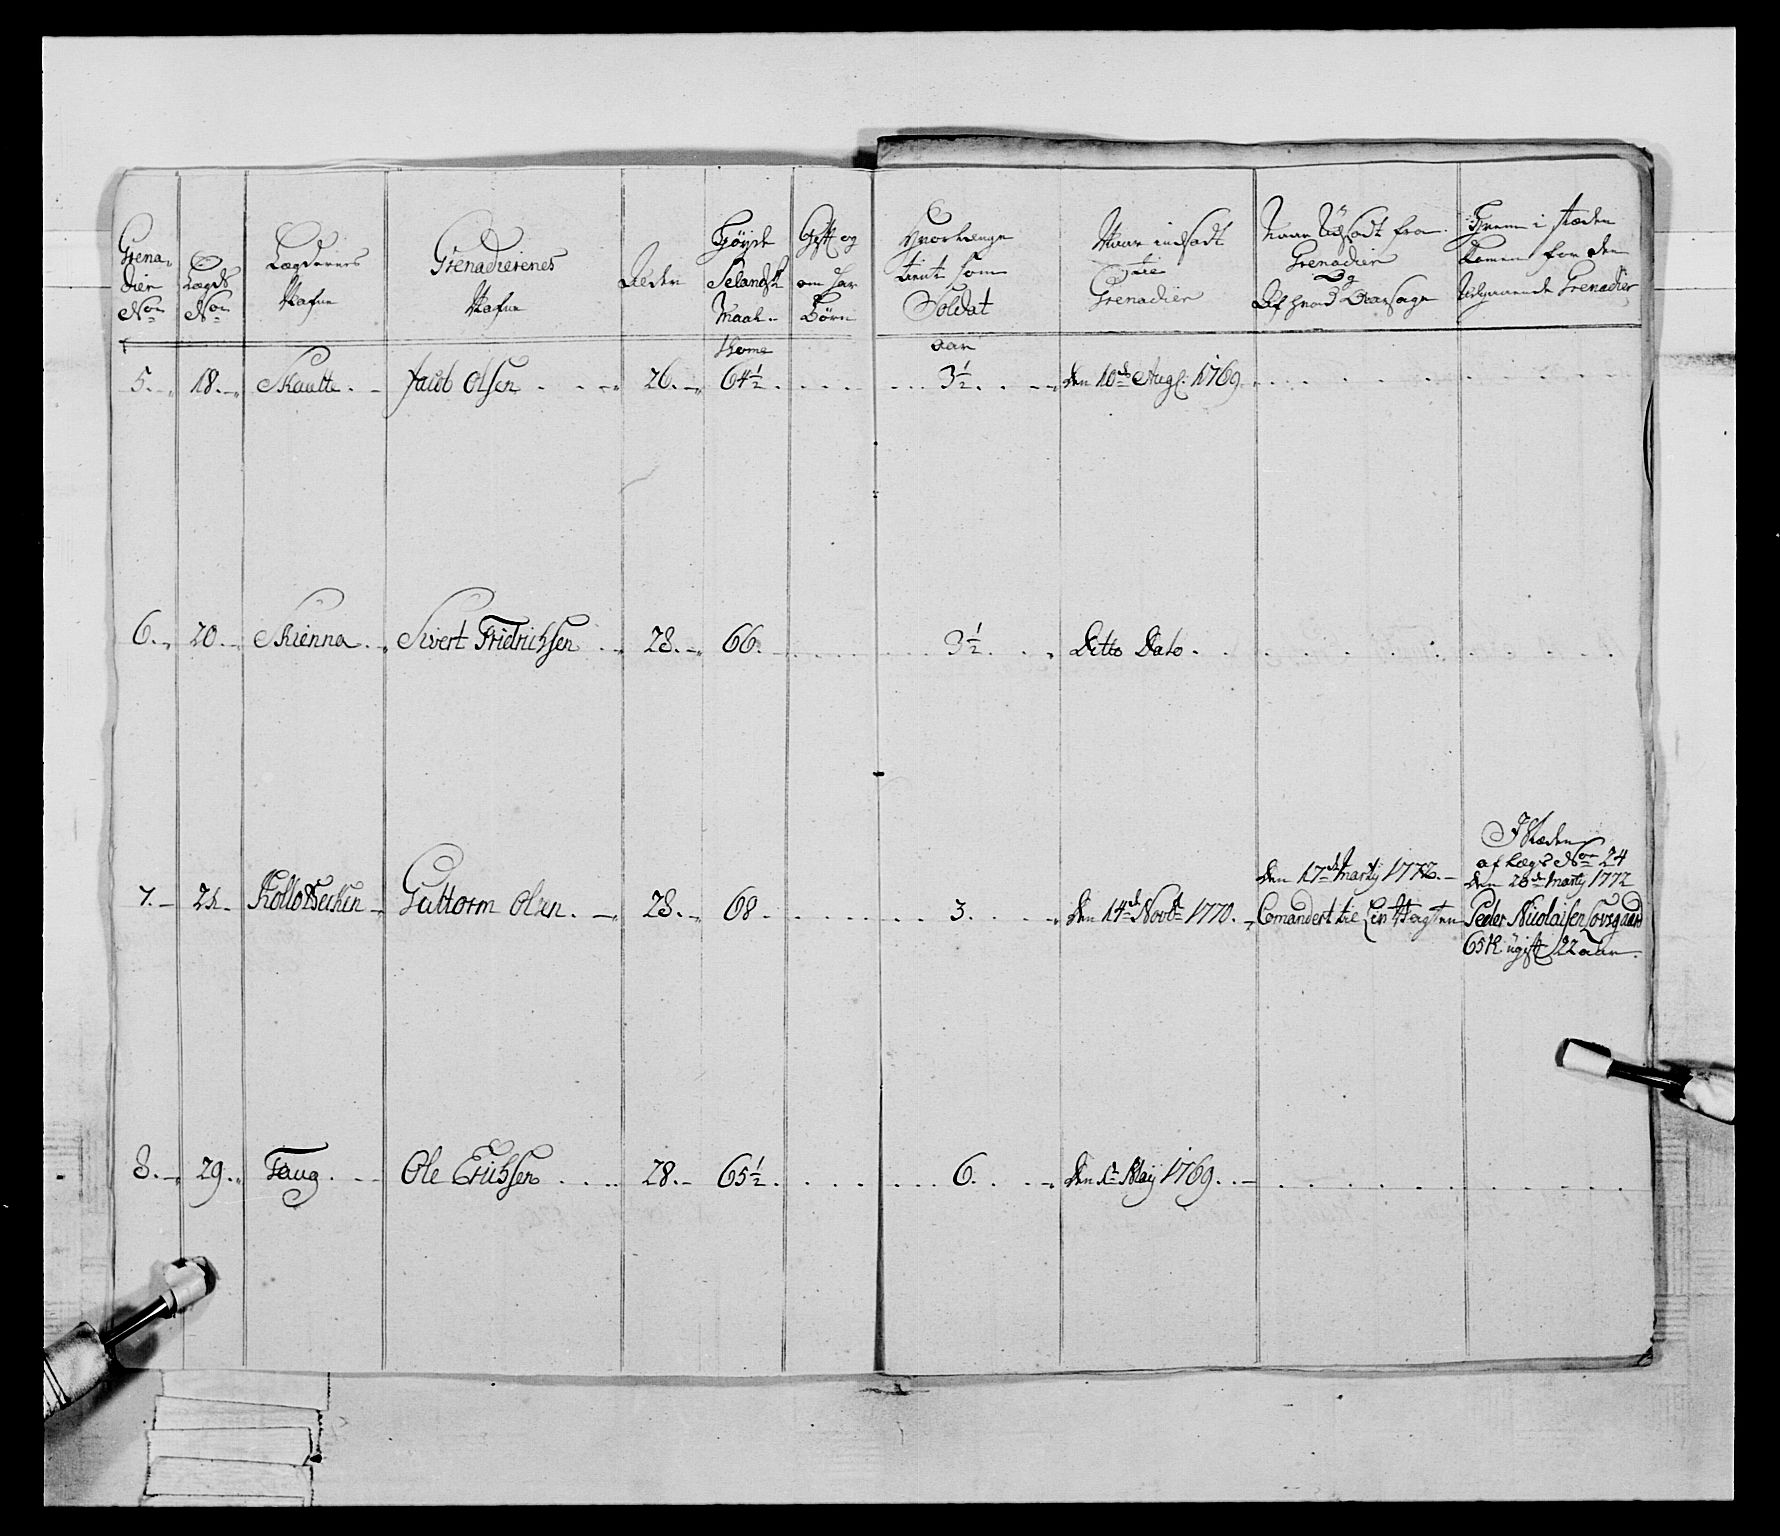 Grena-
dier
No
Lægds
No
Lægdernes
Nafne
Grenadierenes
Nafne
Alder
Høyde
Selandsk
Maal.
Gift og
om har
Børn
Hvorlænge
tient som
Soldat
Naar indsadt
til
Grenadier
Naar Udsadt fra
Grenadier
Og
Af hvad Aarsage
Hvem i stæden
komen for den
Udgaaende Grenadier
Tome
aar
5. 18. Skautte. Jacob Olsen 26. 64½ 3½ den 10de Aug. 1769.
6. 20. Skienna. Sivert Fridrichsen 28. 66. 3½ Ditto Dato.
7. Guttorm Olsen. 28. 68. 3. den 14de Novbr 1770.
den 17de Marty 1772.
Comanderet til Liv Wagten
I Stæden
af Lægd No 24
den 20de Marty 1772
Peder Nicolaisen
65 T. ugift 22 aar
8. 29. Haug. Ole Erichsen 28. 65½ 6. den May 1769.